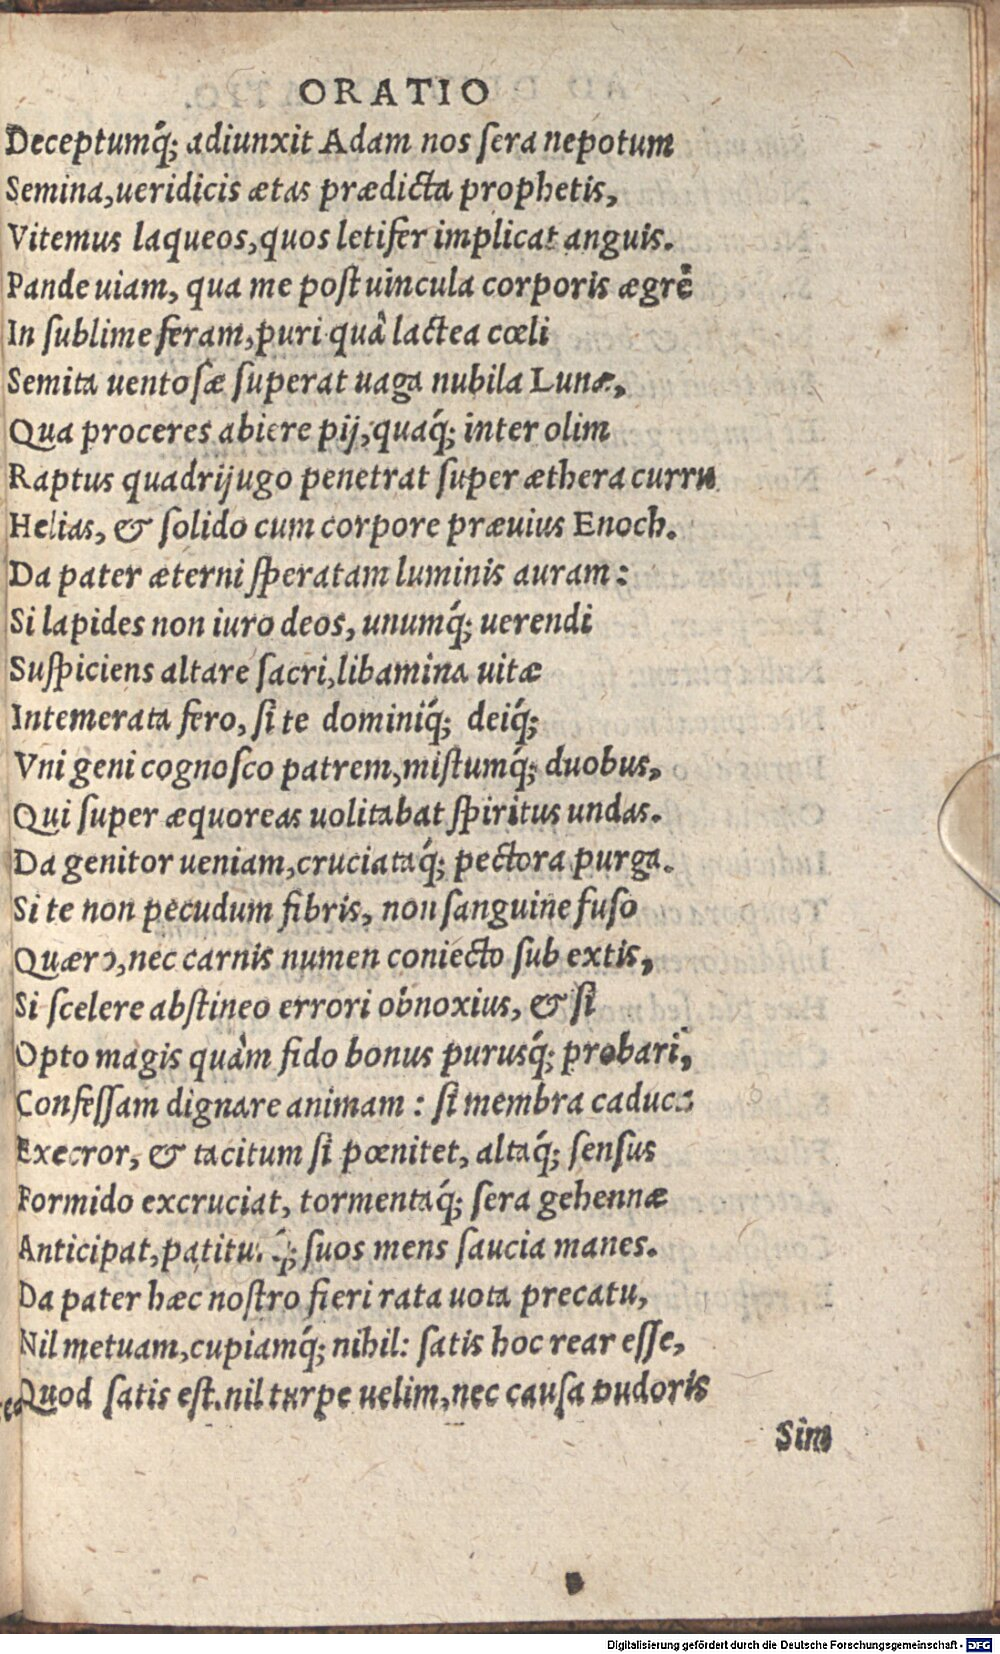 ORATIO
Deceptumq́; adiunxit Adam nos ſera nepotum
Semina,ueridicis ætas prædicta prophetis,
Vitemus laqueos,quos letifer implicat anguis.
Pande uiam, qua me poſt uincula corporis ægrè
In ſublime feram,puri quà lactea cœli
Semita uentoſæ ſuperat uaga nubila Lunæ,
Qua proceres abiere pij,quaq́; inter olim
Raptus quadrijugo penetrat ſuper æthera curru
Helias, & ſolido cum corpore præuius Enoch.
Da pater æterni ſperatam luminis auram:
Si lapides non iuro deos, unumq́; uerendi
Suſpiciens altare ſacri,libamina uitæ
Intemerata fero, ſi te dominiq́; deiq́;
Vni geni cognoſco patrem,miſtumq́; duobus,
Qui ſuper æquoreas uolitabat ſpiritus undas.
Da genitor ueniam,cruciataq́; pectora purga.
Si te non pecudum fibris, non ſanguine fuſo
Quæro,nec carnis numen coniecto ſub extis,
Si ſcelere abſtineo errori obnoxius, & ſi
Opto magis quàm fido bonus purusq́; probari,
Confeſſam dignare animam : ſi membra caduca
Execror, & tacitum ſi pœnitet, altaq́; ſenſus
Formido excruciat, tormentaq́; ſera gehennæ
Anticipat,patiturq́; ſuos mens ſaucia manes.
Da pater hæc noſtro fieri rata uota precatu,
Nil metuam,cupiamq́; nihil: ſatis hoc rear eſſe,
Quod ſatis eſt.nil turpe uelim,nec cauſa pudoris
Sim
Digitalisierung gefördert durch die Deutsche Forschungsgemeinschaft - DFG